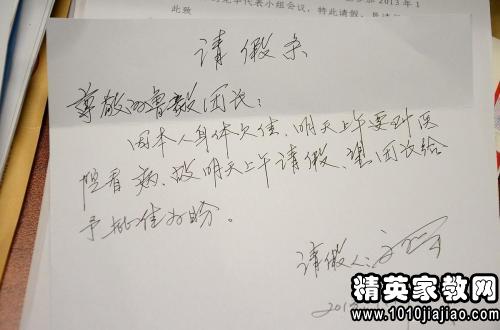 代表小组会议，特此请假，
2013年1
此致
请假条
尊敬的鲁毅团长：
因本人身体欠佳，明天上午要到医
院看病，故明天上午请假，望团长给
予批准为盼。
请假人：
2013
精英家教网
www.1010jiajiao.com